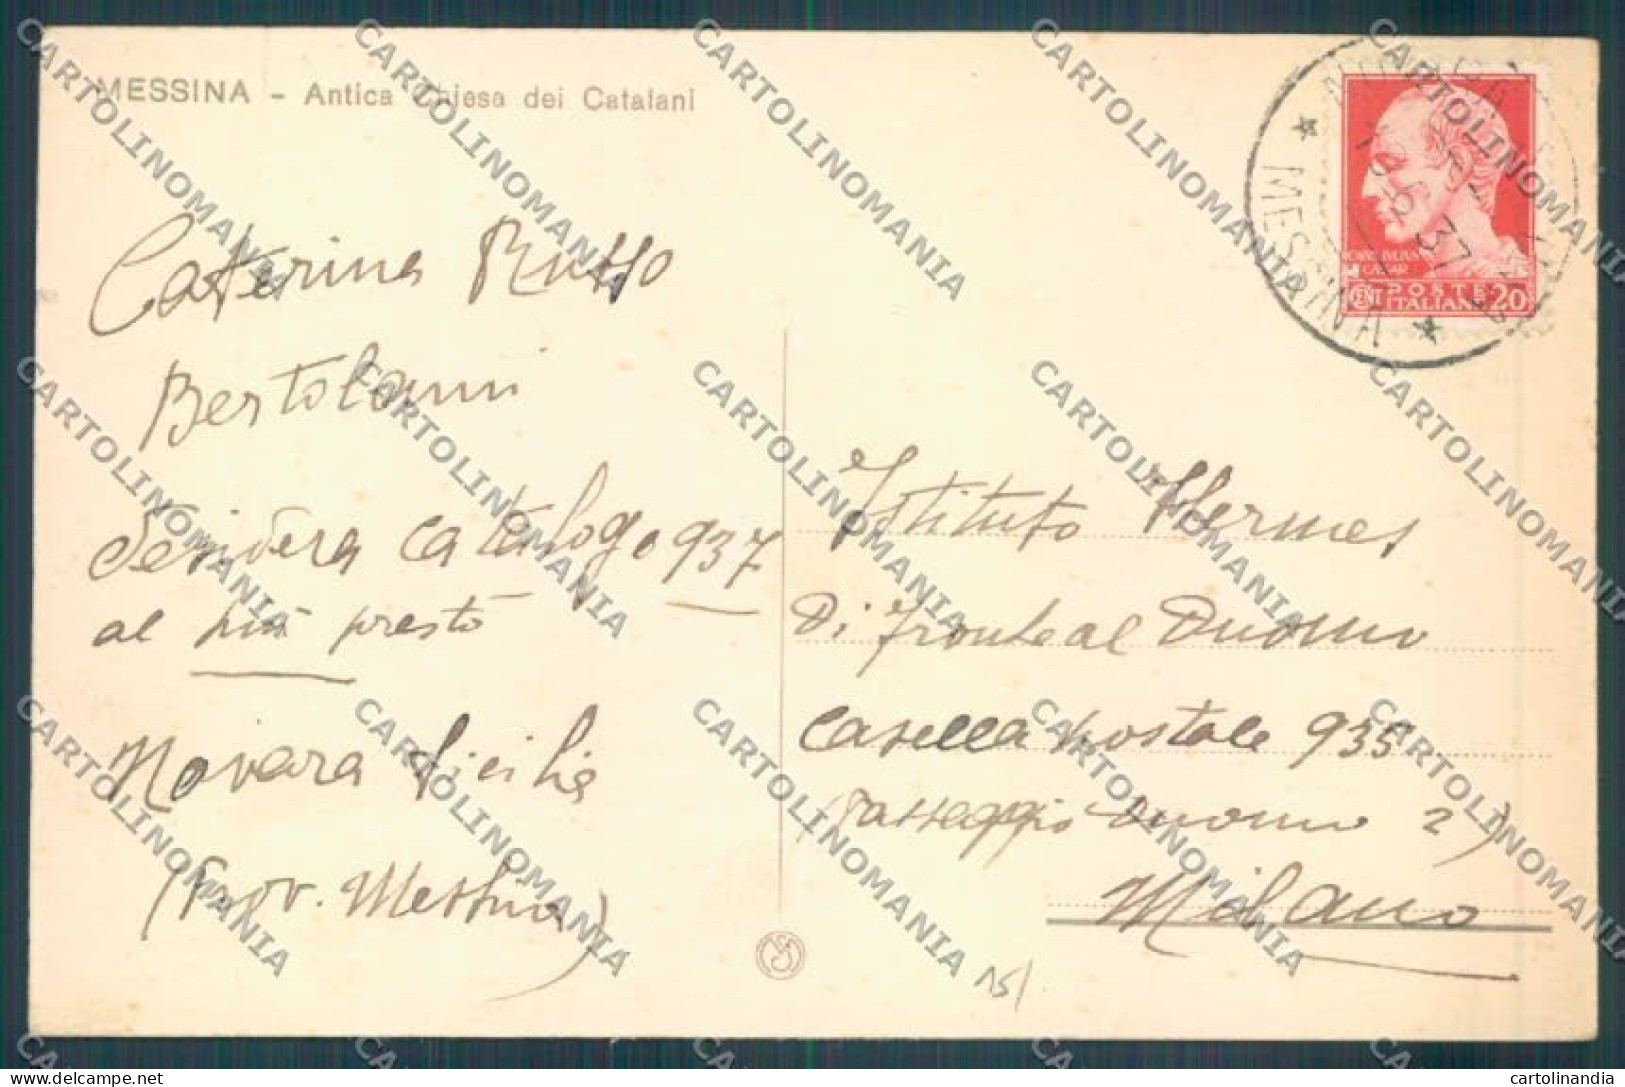 MESSINA - Antica Chiesa dei Catalani
Caterina Russo
Bertolami
desidera catalogo 937
al più presto
Novara Sicilia
(Prov. Messina)
MESSINA
37
POSTE
ITALIANE
CENT 20
Istituto Hermes
Di fronte al Duomo
Casella postale 935
(Passaggio Duomo 2)
Milano
15/
CARTOLINOMANIA
Delcampe.net
cartolinandia